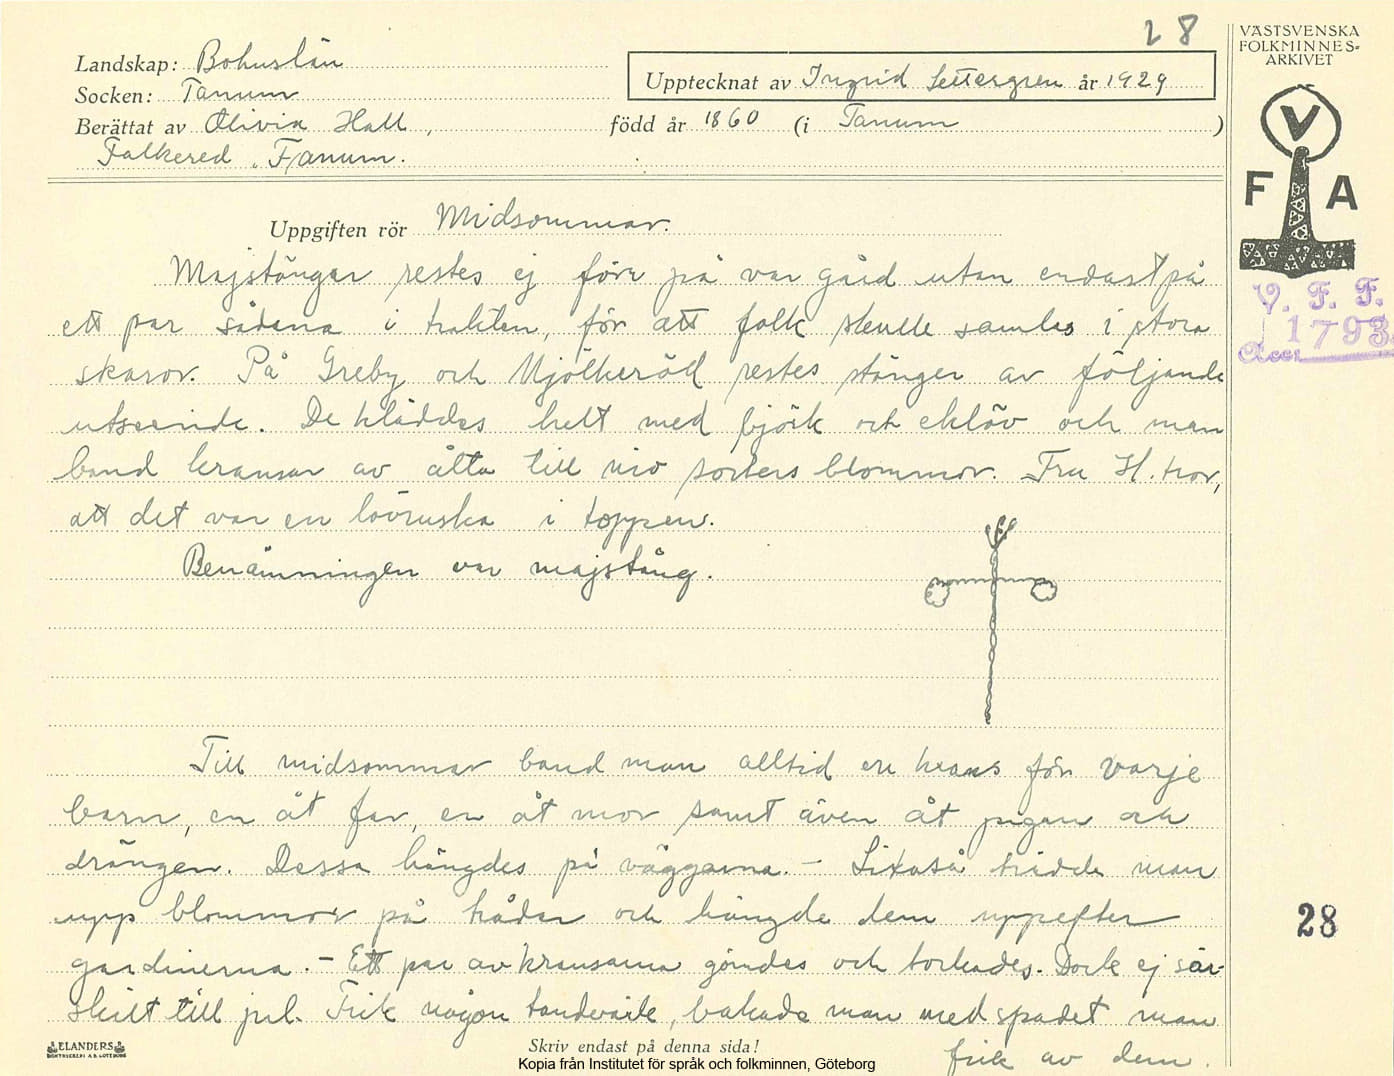 28
Landskap: Bohuslän
Socken: Tanum
Upptecknat av Ingrid Settergren år 1929
Berättat av Olivia Hall, född år 1860 (i Tanum )
Falkered, Tanum.
Uppgiften rör Midsommar.
Majstänger restes ej förr på var gård utan endast på
ett par sådana i trakten, för att folk skulle samlas i stora
skaror. På Greby och Mjölkeröd restes stänger av följande
utseende. De kläddes helt med björk och eklöv och man
band kransar av åtta till nio sorters blommor. Fru H. tror,
att det var en lövruska i toppen.
Benämningen var majstång.
Till midsommar band man alltid en krans för varje
barn, en åt far, en åt mor samt även åt pigan och
drängen. Dessa hängdes på väggarna. – Likaså trädde man
upp blommor på trådar och hängde dem uppefter
gardinerna. – Ett par av kransarna gömdes och torkades. Dock ej sär-
skilt till jul. Fick någon tandvärk, bakade man med spadet man
fick av dem.
Skriv endast på denna sida!
ELANDERS
BOKTRYCKERI A.B. GÖTEBORG
Kopia från Institutet för språk och folkminnen, Göteborg
VÄSTSVENSKA
FOLKMINNES-
ARKIVET
V
F A
V. F. F.
1793
Acc.
28